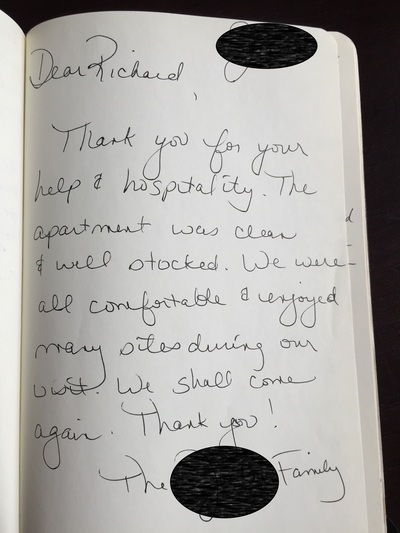 Dear Richard,
Thank you for your
help & hospitality. The
apartment was clean
& well stocked. We were
all comfortable & enjoyed
many sites during our
visit. We shall come
again. Thank you!
The Family